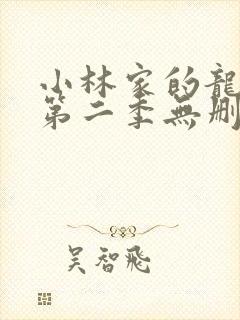 小林家的龍
第二季無刪
吴智飛